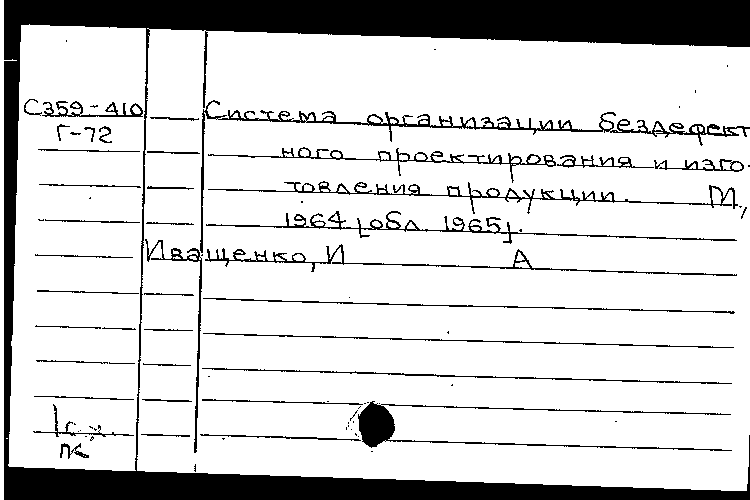 С359-410
Г-72
Система организации бездефект
ного проектирования и изго-
товления продукции. М.,
1964 [обл. 1965].
Иващенко, И А